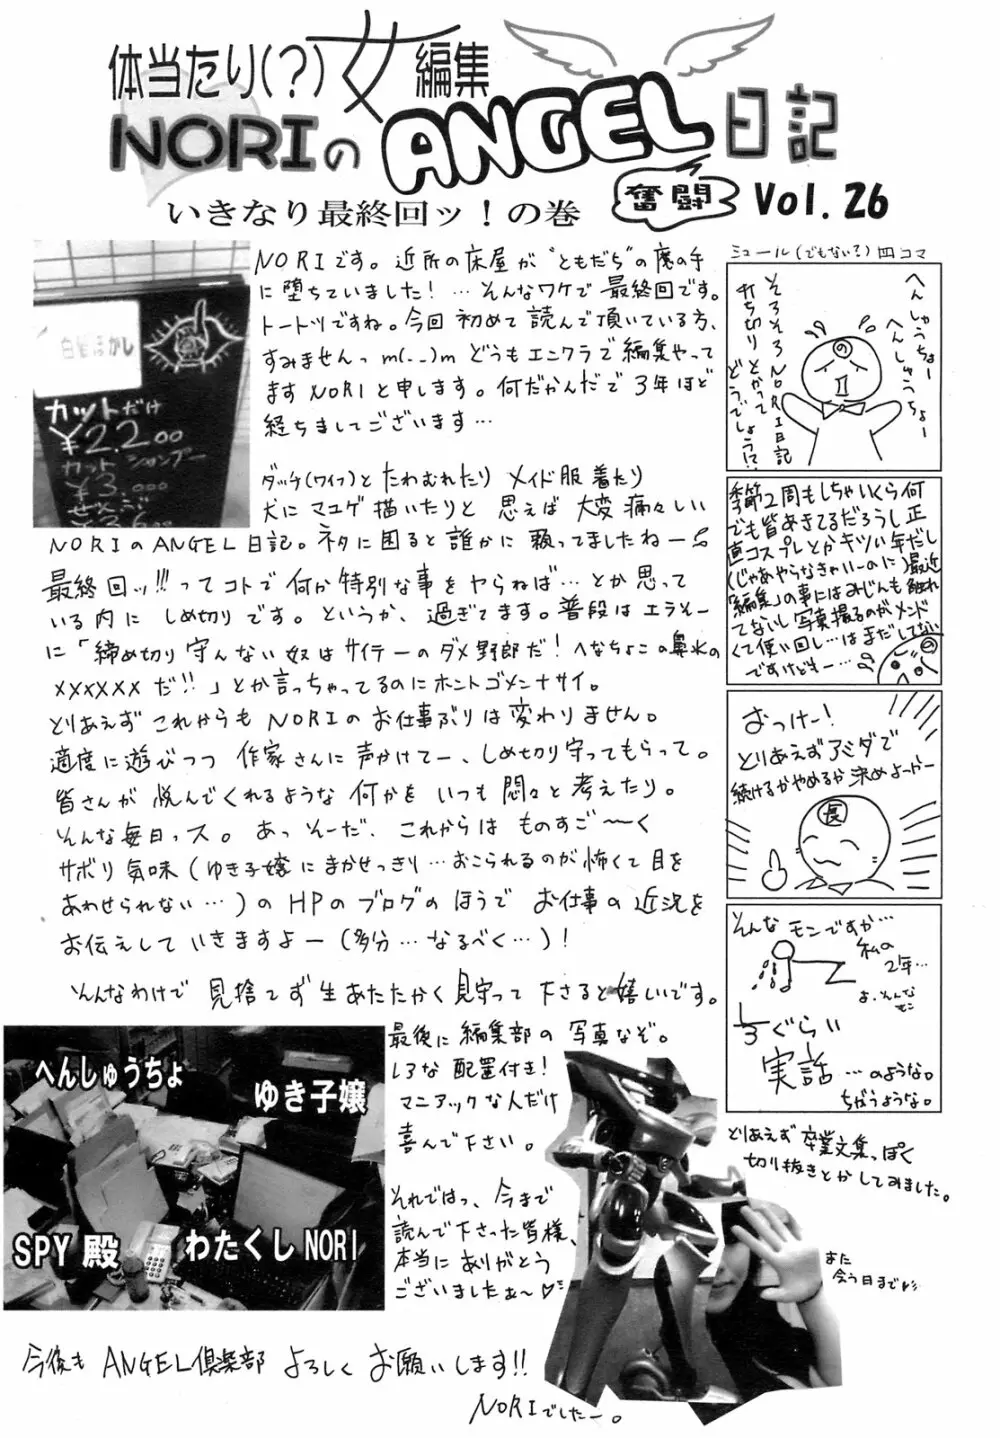 体当たり(?)女編集
NORIのANGEL日記
奮闘
Vol. 26
いきなり最終回ッ!の巻
白髪ぼかし
カットだけ
¥2.200
カット シャンプー
¥3.000
ぜんぶ
NORIです。近所の床屋が"ともだち"の魔の手
に堕ちていました!…そんなワケで最終回です。
トートツですね。今回初めて読んで頂いている方、
すみませんっm(..)m どうもエンクラで編集やって
ますNORIと申します。何だかんだで3年ほど
経ちましてございます…
ダッチ(ワイフ)とたわむれたり メイド服着たり
犬にマユゲ描いたりと 思えば 大変痛々しい
NORIのANGEL日記。ネタに困ると誰かに頼ってましたねー
最終回ッ!!!ってコトで何か特別な事をヤらねば…とか思って
いる内に しめ切りです。というか、過ぎてます。普段はエラソー
に「締め切り守んない奴はサイテーのダメ野郎だ!へなちょこの鼻水の
××××××だ!!」とか言っちゃってるのにホントゴメンナサイ。
とりあえずこれからもNORIのお仕事ぶりは変わりません。
適度に遊びつつ 作家さんに声かけてー、しめ切り守ってもらって。
皆さんが悦んでくれるような何かをいつも悶々と考えたり。
そんな毎日っス。あっそーだ、これからは ものすご〜く
サボり気味(ゆき子嬢にまかせっきり…おこられるのが怖くて目を
あわせられない…)のHPのブログのほうで お仕事の近況を
お伝えしていきますよー(多分…なるべく…)!
そんなわけで見捨てず生あたたかく見守って下さると嬉しいです。
最後に編集部の写真なぞ。
しろな配置付き!
マニアックな人だけ
喜んで下さい。
それではっ、今まで
読んで下さった皆様、
本当にありがとう
ございましたぁ〜♡
へんしゅうちょ
ゆき子嬢
SPY殿
わたくしNORI
今後もANGEL倶楽部よろしくお願いします!!
NORIでしたー。
ミュール(でもない?)四コマ
へんしゅうちょー
へんしゅうちょー
そろそろNORI日記
打ち切りとかって
どうでしょう!?
の
季節2周もしちゃいくら何
でも皆あきてるだろうし正
直コスプレとかキツい年だし
(じゃあやらなきゃいーのに)最近
「編集」の事にはみじんも触れ
てないし写真撮るのがメンド
くて使い回し…はまだしてない
ですけどもー…
の
おっけー!
とりあえずアミダで
続けるかやめるか決めよっかー
長
そんなモンですか…
私の
2年…
よ、そんなモン
1/3ぐらい
実話…のような。
ちがうような。
とりあえず卒業文集っぽく
切り抜きとかしてみました。
また
会う日まで